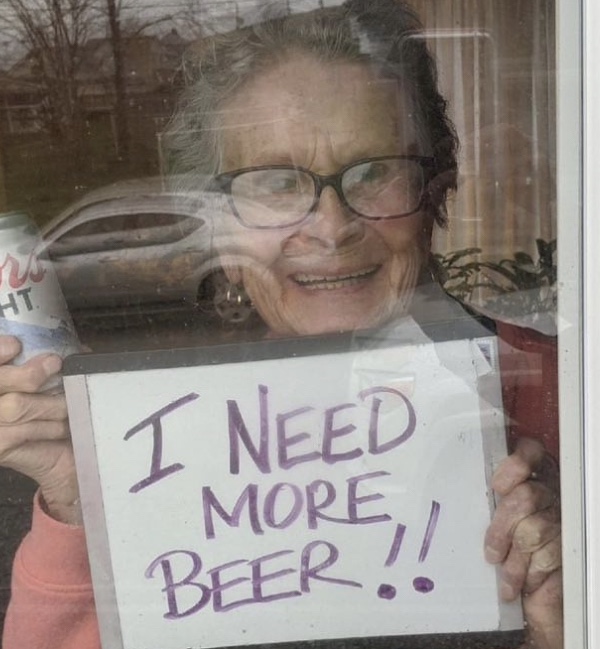 ors
HT
I NEED
MORE
BEER!!